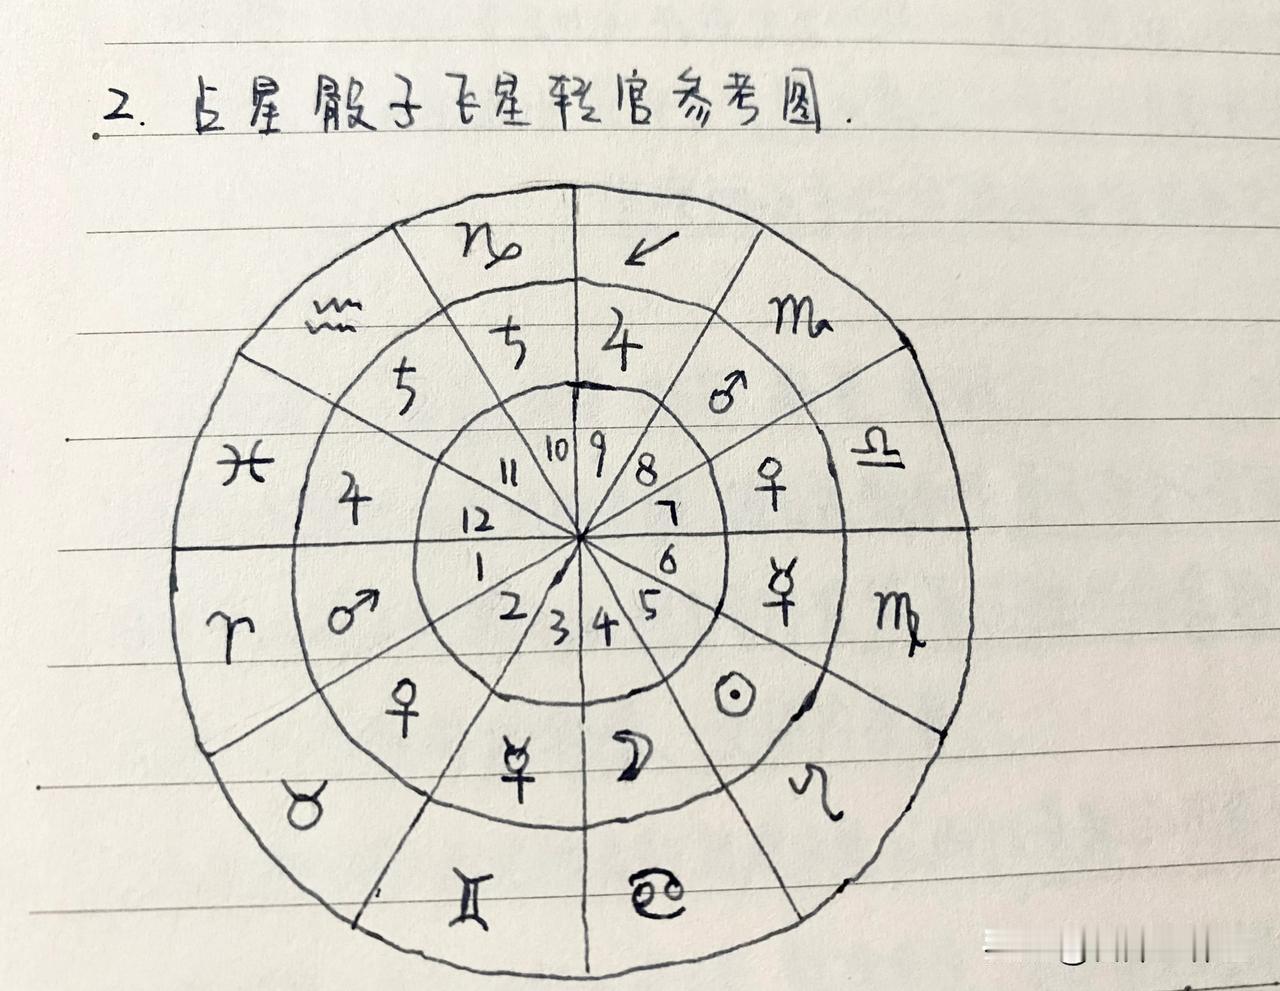 2. 占星骰子飞星转宫参考图.
♑ ↙
♒ ♏
♄ ♃
♄ ♂
♓ ♎
♃ ♀
10 9
11 8
12 7
1 6
2 5
3 4
♈ ♂ ☿ ♍
♀ ☉
☿ ☽
♉ ♌
♊ ♋